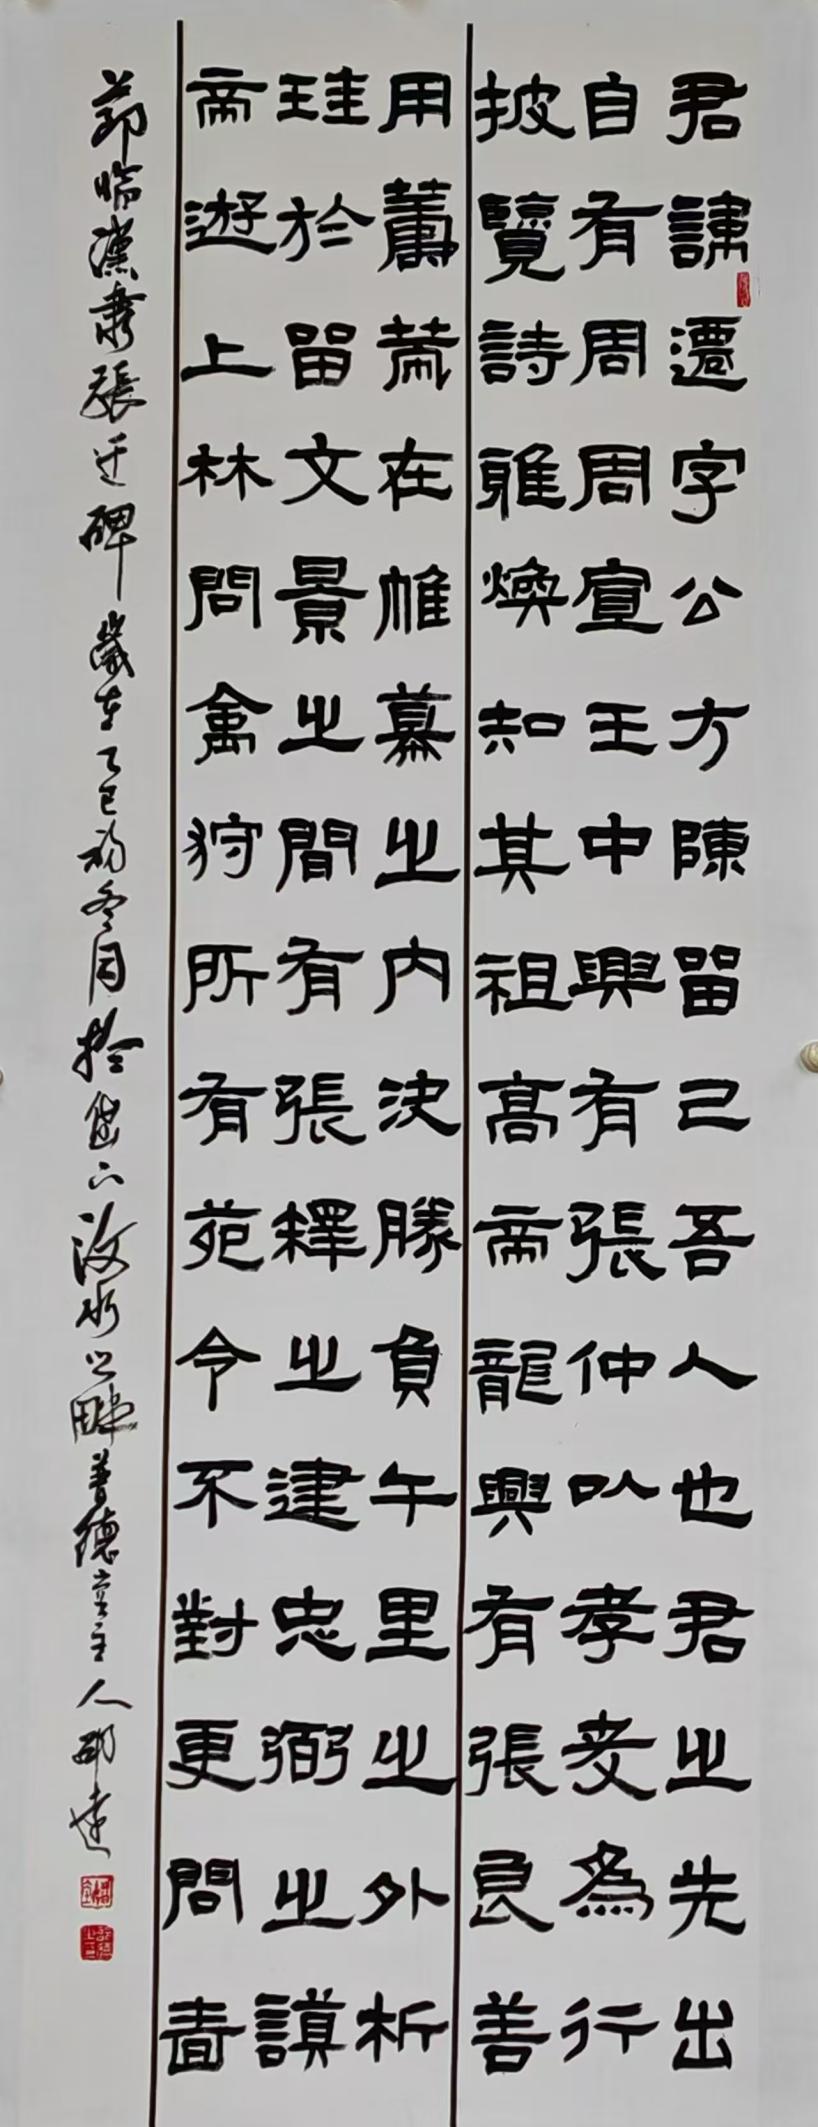 君諱遷字公方陳留己吾人也君之先出
自有周周宣王中興有張仲以孝友為行
披覽詩雅煥知其祖高帝龍興有張良善
用籌策在帷幕之內決勝負千里之外析
珪於留文景之間有張釋之建忠弼之謨
帝遊上林問禽狩所有苑令不對更問嗇
節臨漢隸張迁碑歲在乙巳初冬月於岱下汶水之畔善德堂主人邵